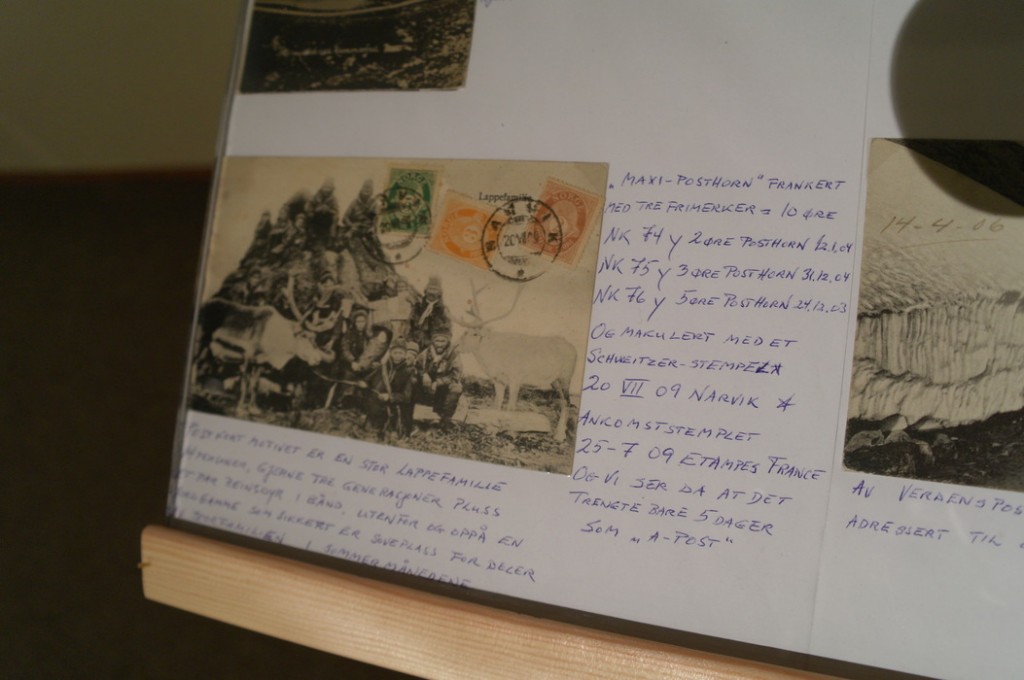 Lappefamilie
NARVIK
20 VII 09
„MAXI-POSTHORN" FRANKERT
MED TRE FRIMERKER = 10 ØRE
NK 74 y 2 ØRE POSTHORN 12.1.04
NK 75 y 3 ØRE POSTHORN 31.12.04
NK 76 y 5 ØRE POSTHORN 24.12.03
OG MAKULERT MED ET
SCHWEITZER-STEMPEL
20 VII 09 NARVIK
ANKOMSTSTEMPLET
25-7 09 ETAMPES FRANCE
OG VI SER DA AT DET
TRENGTE BARE 5 DAGER
SOM „A-POST"
MOTIVET ER EN STOR LAPPEFAMILIE
GJERNE TRE GENERASJONER PLUSS
PAR REINSDYR I BÅND, UTENFOR OG OPPÅ EN
SOM SIKKERT ER SOVEPLASS FOR DELER
I SOMMERMÅNEDENE
14-4-06
AV VERDENSPOS
ADRESSERT TIL